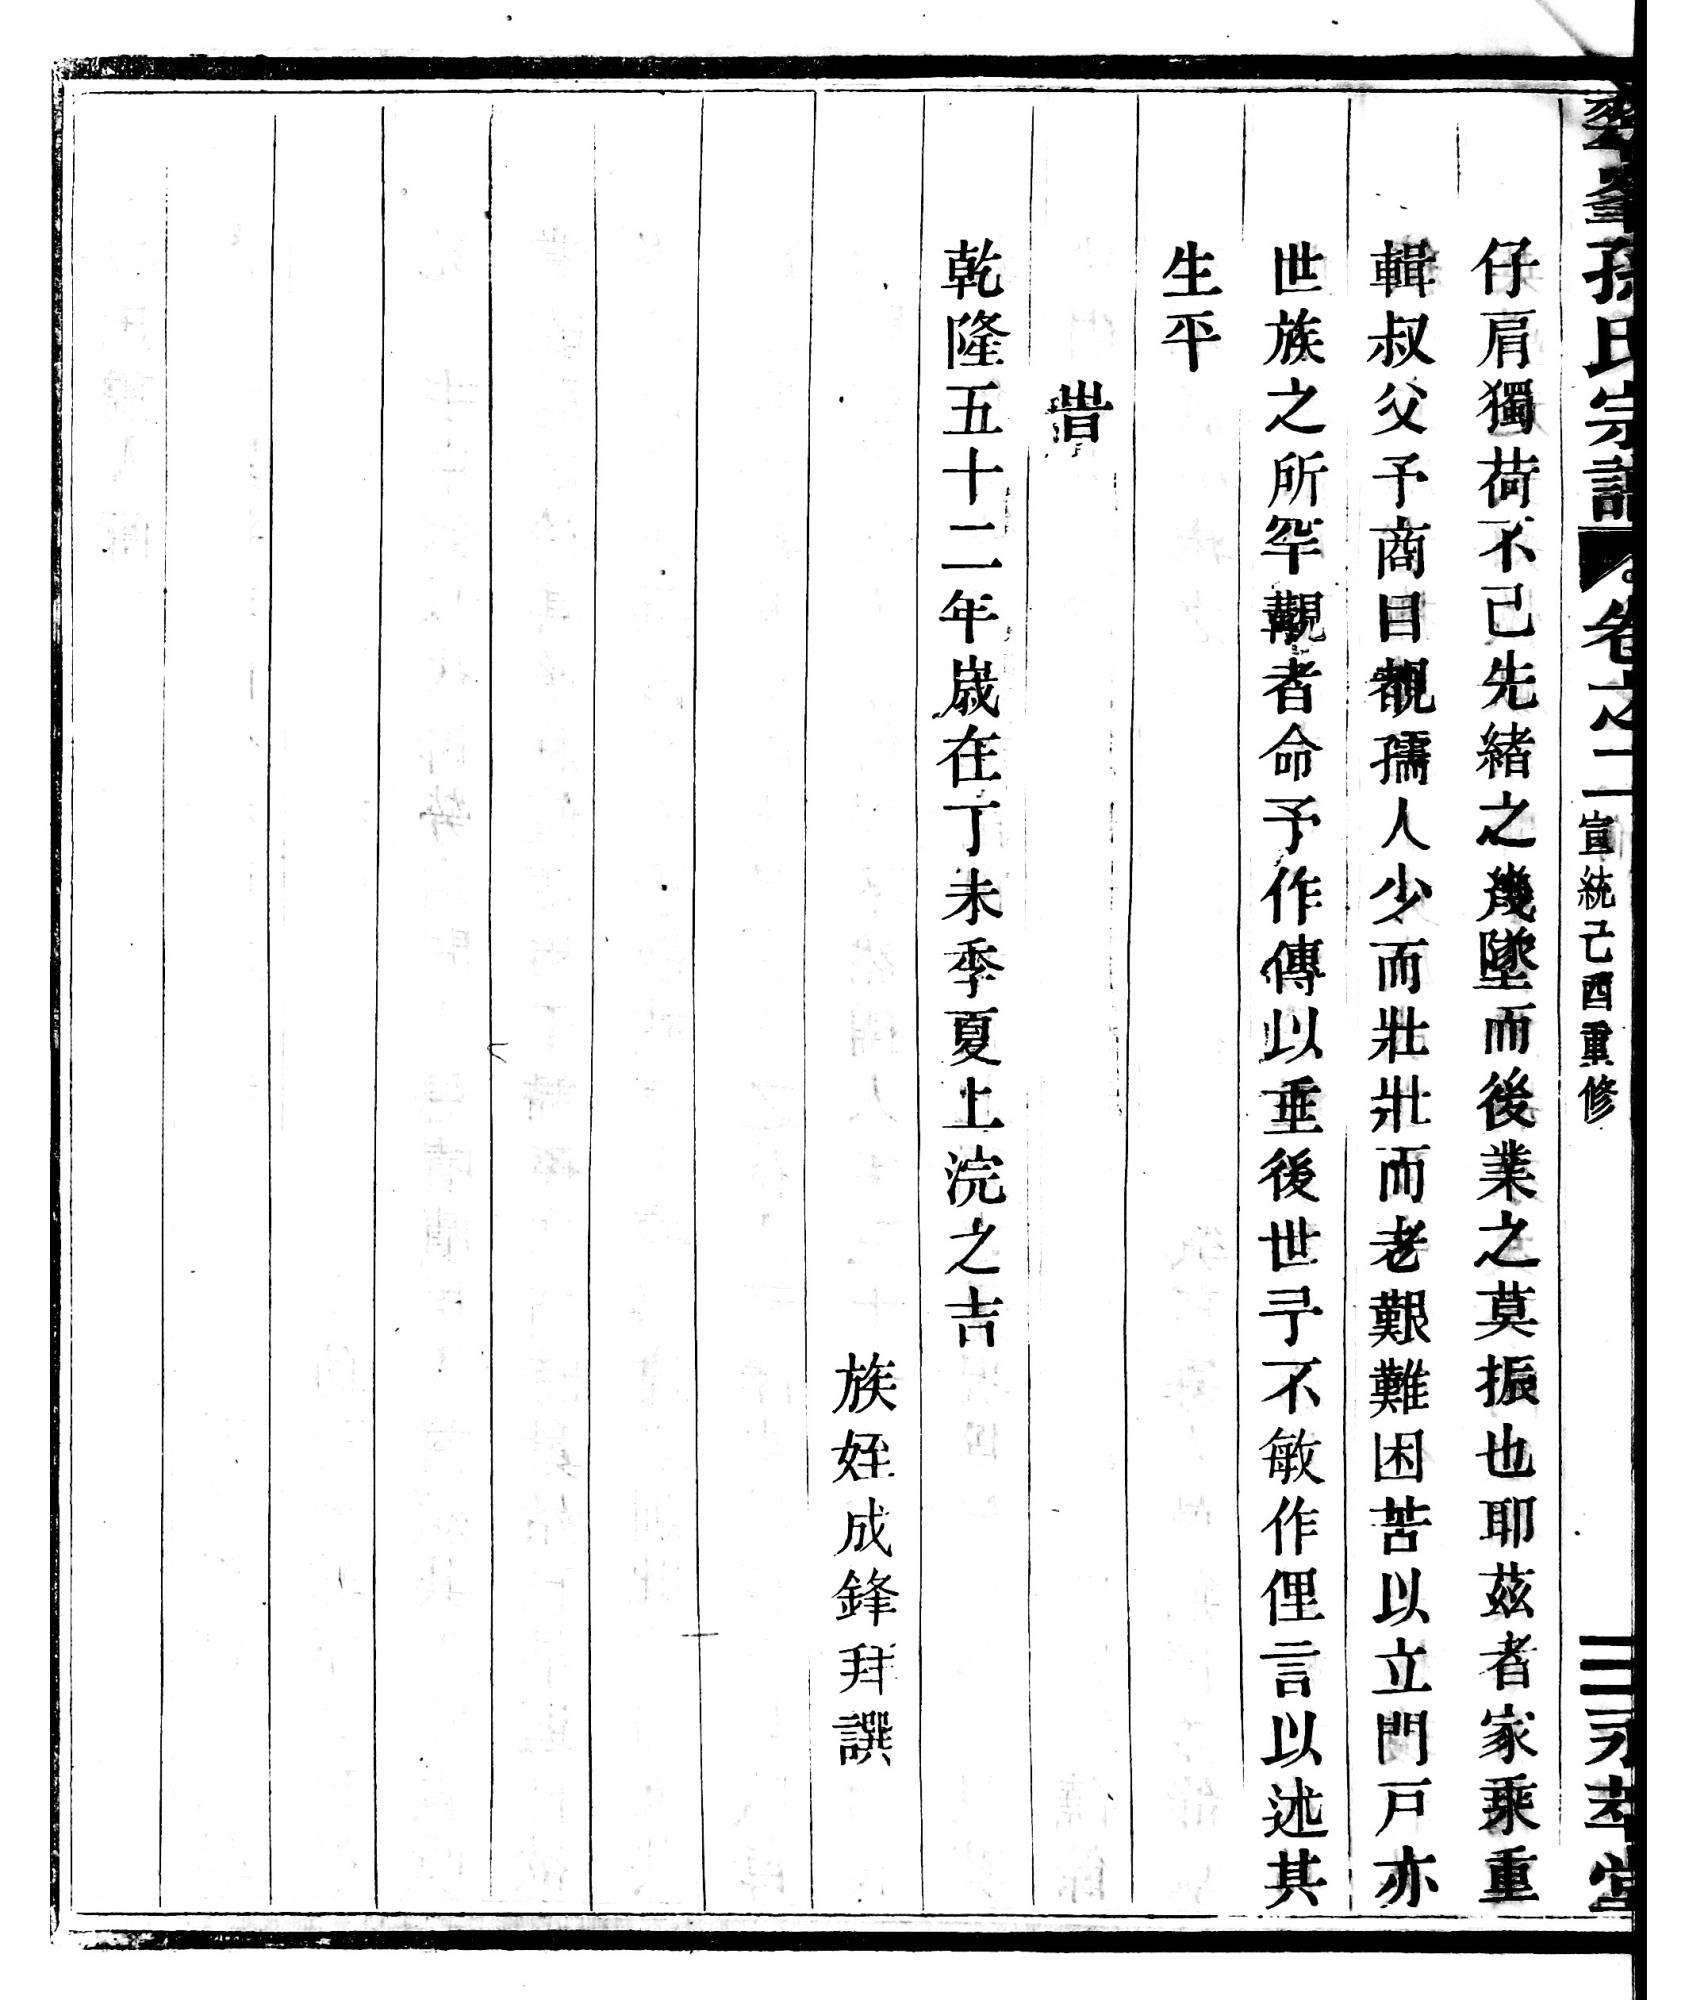 孫氏宗譜 卷之二 宣統己酉重修 三 永萃堂
仔肩獨荷不已先緒之幾墜而後業之莫振也耶茲者家乘重
輯叔父予商目覩孺人少而壯壯而老艱難困苦以立門戸亦
世族之所罕觀者命予作傳以垂後世予不敏作俚言以述其
生平
旹
乾隆五十二年嵗在丁未季夏上浣之吉
族姪成鋒拜譔